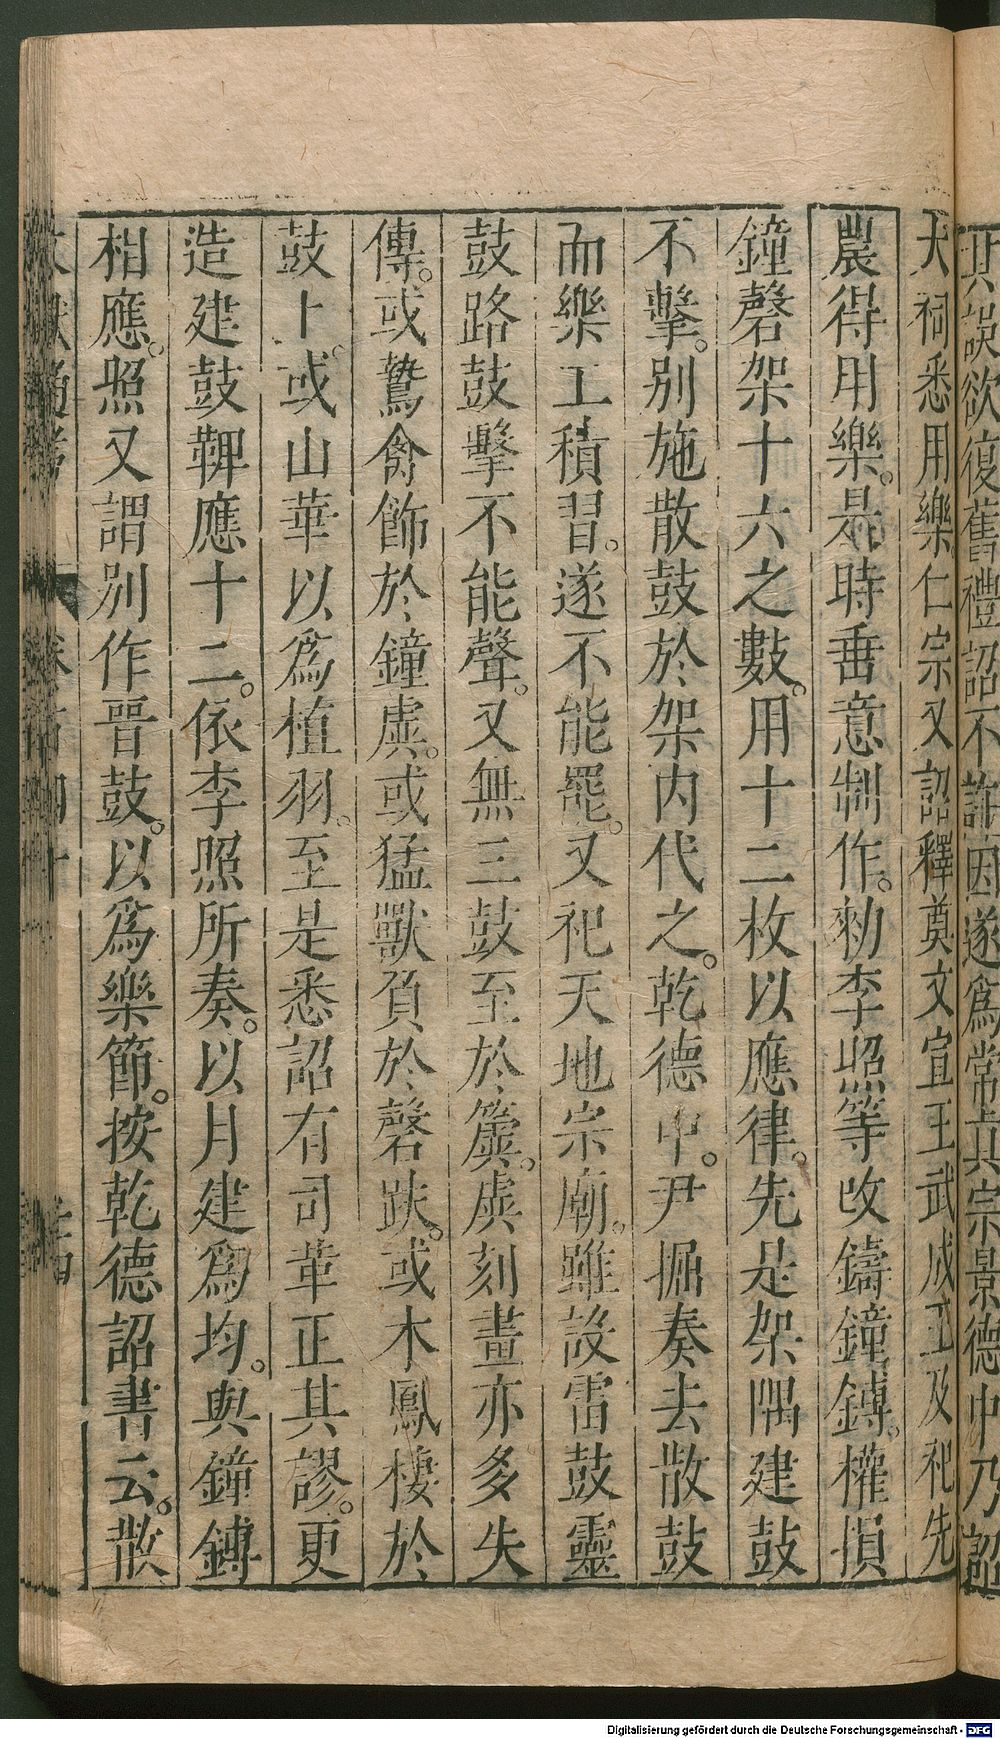 其誤欲復舊禮詔不許因遂爲常真宗景德中乃詔
大祠悉用樂仁宗又詔釋奠文宣王武成王及祀先
農得用樂。是時垂意制作。勑李照等改鑄鐘鎛。權損
鐘磬架十六之數。用十二枚以應律。先是架隅建鼓
不擊。別施散鼓於架内代之。乾德中。尹掘奏去散鼓
而樂工積習。遂不能罷。又祀天地宗廟。雖設雷鼓靈
鼓路鼓擊不能聲。又無三鼓至於簴。虡刻畫亦多失
傳。或鷙禽飾於鐘虡。或猛獸負於磬趺。或木鳳棲於
鼓上。或山華以爲植羽。至是悉詔有司革正其謬。更
造建鼓鞞應十二。依李照所奏。以月建爲均。與鐘鎛
相應。照又謂別作晋鼓。以爲樂節。按乾德詔書云。散
Digitalisierung gefördert durch die Deutsche Forschungsgemeinschaft - DFG